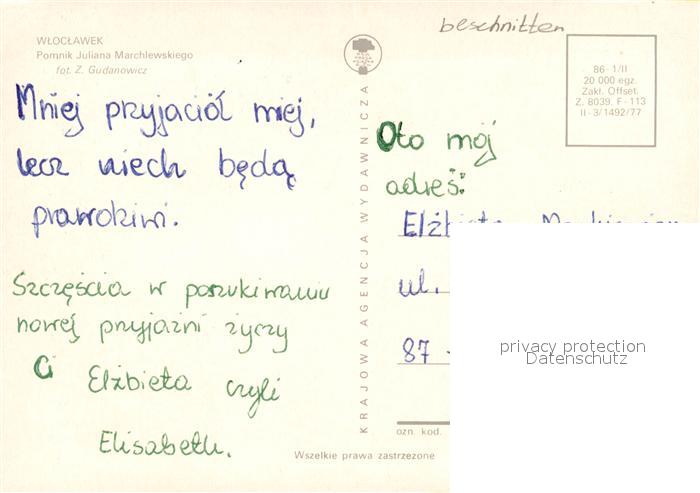 WŁOCŁAWEK
Pomnik Juliana Marchlewskiego
fot. Z. Gudanowicz
Mniej przyjaciół miej,
lecz niech będą
prawdziwi.
Szczęścia w poszukiwaniu
nowej przyjaźni życzy
Ci Elżbieta czyli
Elisabeth.
KRAJOWA AGENCJA WYDAWNICZA
beschnitten
86-1/II
20 000 egz.
Zakł. Offset.
Z. 8039. F-113
II-3/1492/77
Oto mój
adres:
ul.
87 -
ozn. kod.
privacy protection
Datenschutz
Wszelkie prawa zastrzeżone